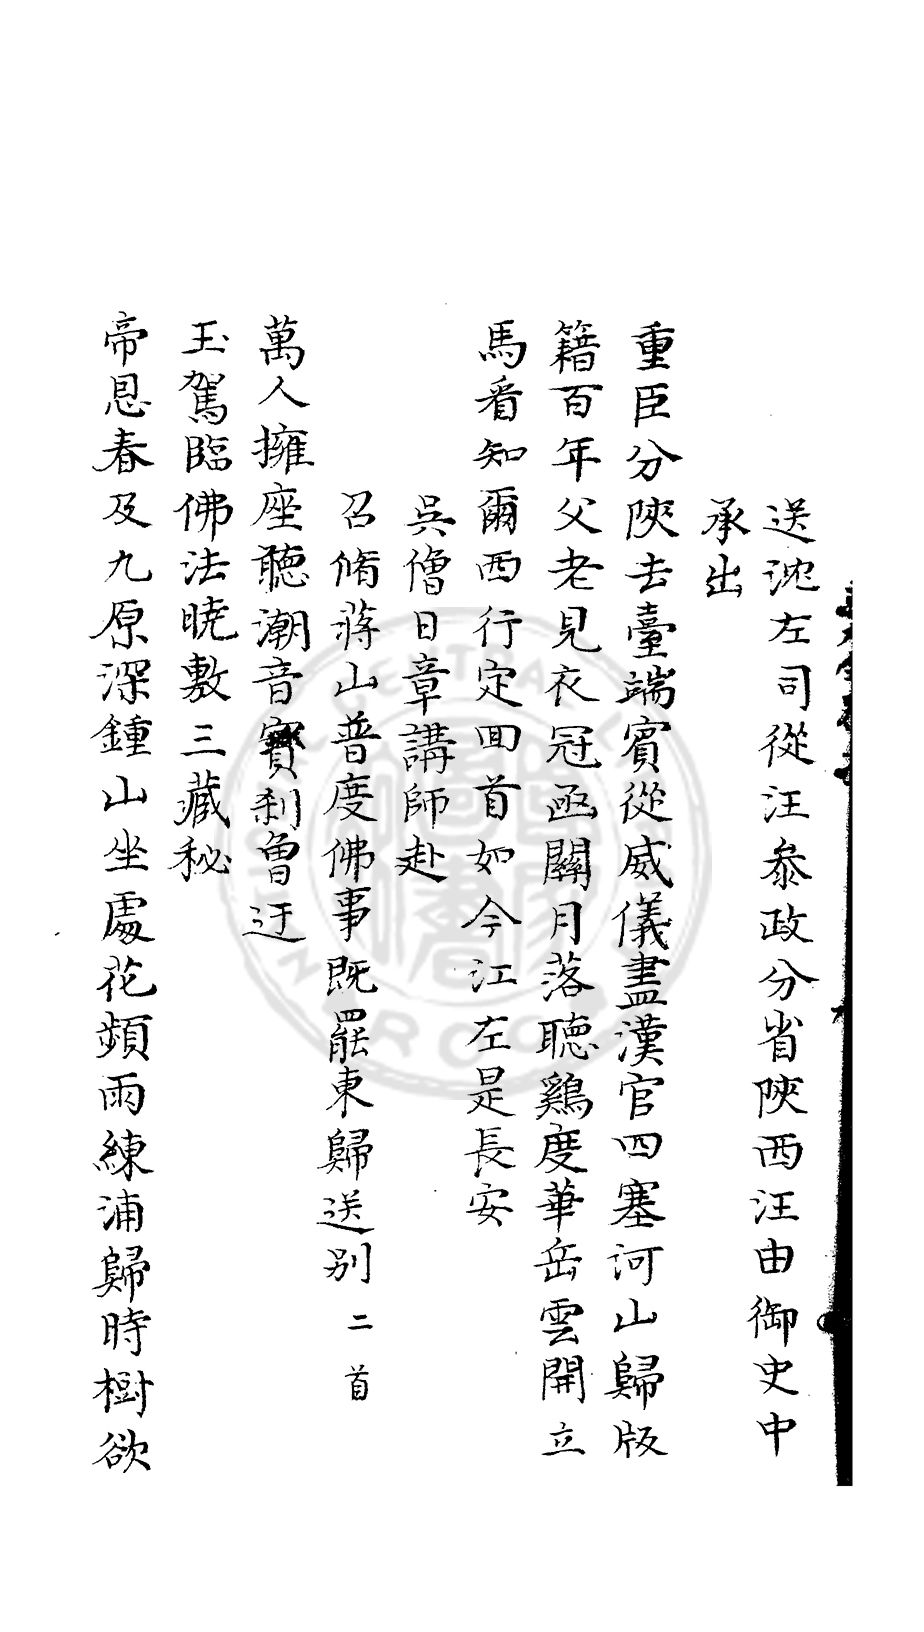 送沈左司從汪叅政分省陝西汪由御史中
承出
重臣分陝去臺端賓從威儀盡漢官四塞河山歸版
籍百年父老見衣冠函關月落聽鷄度華岳雲開立
馬看知爾西行定回首如今江左是長安
吳僧日章講師赴
召脩蔣山普度佛事既罷東歸送别二首
萬人擁座聽潮音寳刹曾迂
玉駕臨佛法曉敷三藏秘
帝恩春及九原深鍾山坐處花頻雨練浦歸時樹欲